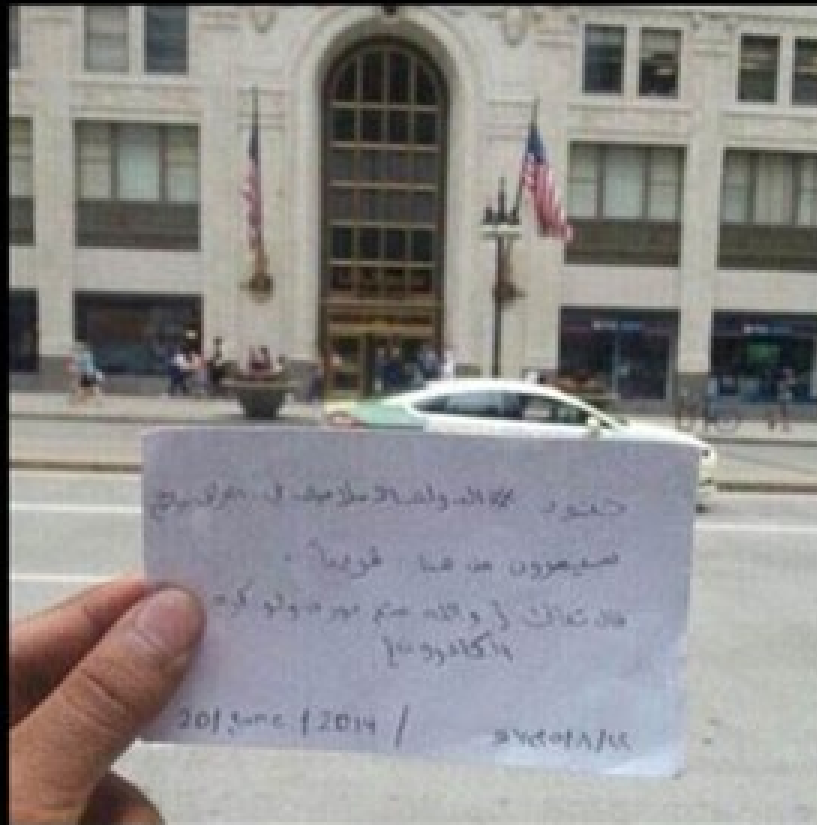 جنود الدولة الاسلامية في العراق والشام
سيمرون من هنا قريباً .
قال تعالى { والله متم نوره ولو كره
الكافرون }
20/June/2014/